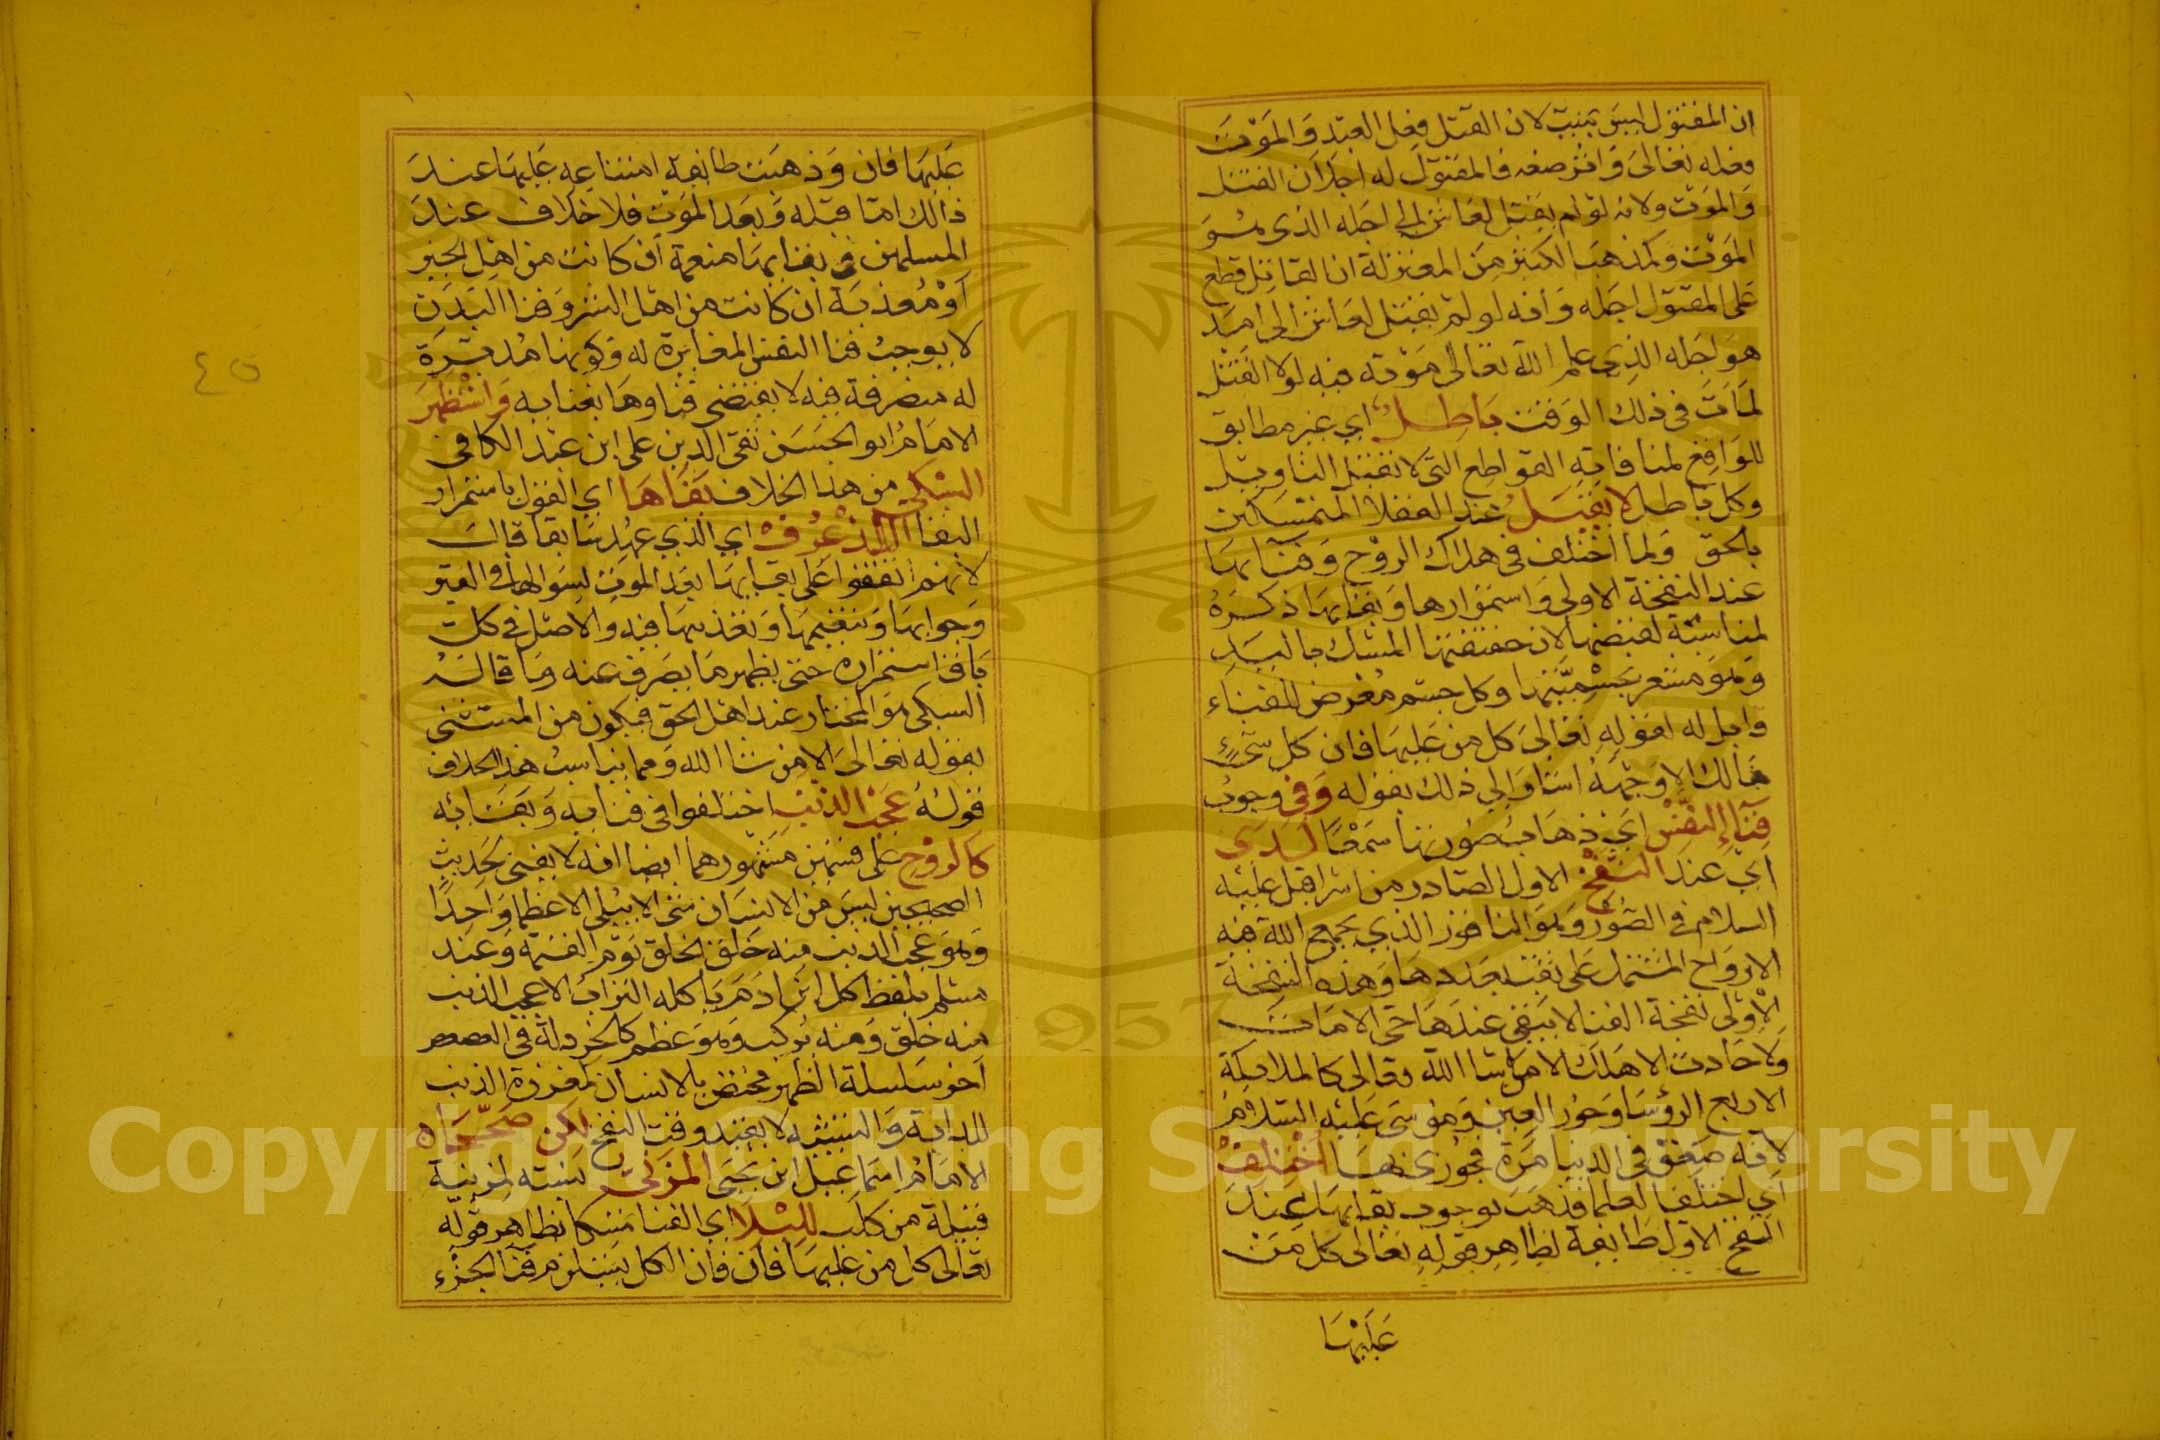 ان المقتول ليس بميت لان القتل فعل العبد والموت
فعله تعالى واثر صنعه فالمقتول له اجلان القتل
والموت ولانه لو لم يقتل لعاش الى اجله الذي هو
الموت وكمذهب الكثير من المعتزلة ان القاتل قطع
على المقتول اجله وانه لو لم يقتل لعاش الى امد
هو اجله الذي علم الله تعالى موته فيه لولا القتل
لمات في ذلك الوقت باطل اي غير مطابق
للواقع لمنافاته القواطع التي لا تقبل التاويل
وكل باطل لا يقبل عند العقلا المتمسكين
بالحق ولما اختلف في هلاك الروح وفنآئها
عند النفخة الاولى واستمرارها وبقائها ذكره
لمناسبة لقبضها لان حقيقتها المسك باليد
وهو مشعر بجسميتها وكل جسم معرض للفناء
وابل له لقوله تعالى كل من عليها فان كل شيء
هالك الا وجهه اشار الى ذلك بقوله وفي وجوب
فنآء النفس اي ذهاب صورتها سمعا لدى
اي عند النفخ الاول الصادر من اسرافيل عليه
السلام في الصور وهو الناقور الذي يجمع الله فيه
الارواح المشتمل على ثقب بعددها وهذه النفخة
الاولى نفخة الفنا لا يبقى عندها حي الا مات
ولا حادث الا هلك الا من شا الله تعالى كالملائكة
الاربع الرؤسا وحور العين وموسى عليه السلام
لانه صعق في الدنيا مرة فجوزي بها اختلف
اي اختلف العلما فذهب لوجوب بقائها عند
النفخ الاول طائفة لظاهر قوله تعالى كل من
عليها
عليها فان وذهبت طائفة امتناعه عليها عند
ذالك اما قبله وبعد الموت فلا خلاف عند
المسلمين في بقائها منعمة ان كانت من اهل الخير
او معذبة ان كانت من اهل الشر وفنا البدن
لا يوجب فنا النفس المغايرة له وكونها مدبرة
له متصرفة فيه لا يقتضي فناوها بفنايه واستظهر
الامام ابو الحسن تقي الدين علي ابن عبد الكافي
السبكي من هذا الخلاف بقاها اي القول باستمرار
البقا اللذ عرف اي الذي عهد سابقا قال
لانهم اتفقوا على بقائها بعد الموت لسوالها في القبر
وجوابها وتنعيمها وتعذيبها فيه والاصل في كل
باق استمراره حتى يظهر ما يصرف عنه وما قاله
السبكي هو المختار عند اهل الحق فيكون من المستثنى
بقوله تعالى الا من شا الله ومما يناسب هذا الخلاف
قوله عجب الذنب اختلفوا في فنايه وبقائه
كالروح على قسمين مشهورهما ايضا انه لا يفنى لحديث
الصحيحين ليس من الانسان شي الا يبلى الا عظما واحدا
وهو عجب الذنب منه خلق الخلق يوم القيمة وعند
مسلم بلفظ كل ابن ادم ياكله التراب الا عجب الذنب
منه خلق ومنه يركب وهو عظم كالخردلة في العصعص
اخر سلسلة الظهر مختص بالانسان كمغرزة الذنب
للدابة والتشبيه لا يفيد وقت النفخ لكن صححاه
الامام اسماعيل ابن يحيى المزني نسبة لمزينة
قبيلة من كلب للبلا اي الفنا متمسكا بظاهر قوله
تعالى كل من عليها فان فان الكل يستلزم فنا الجزء
٤٥
Copyright © King Saud University
1957